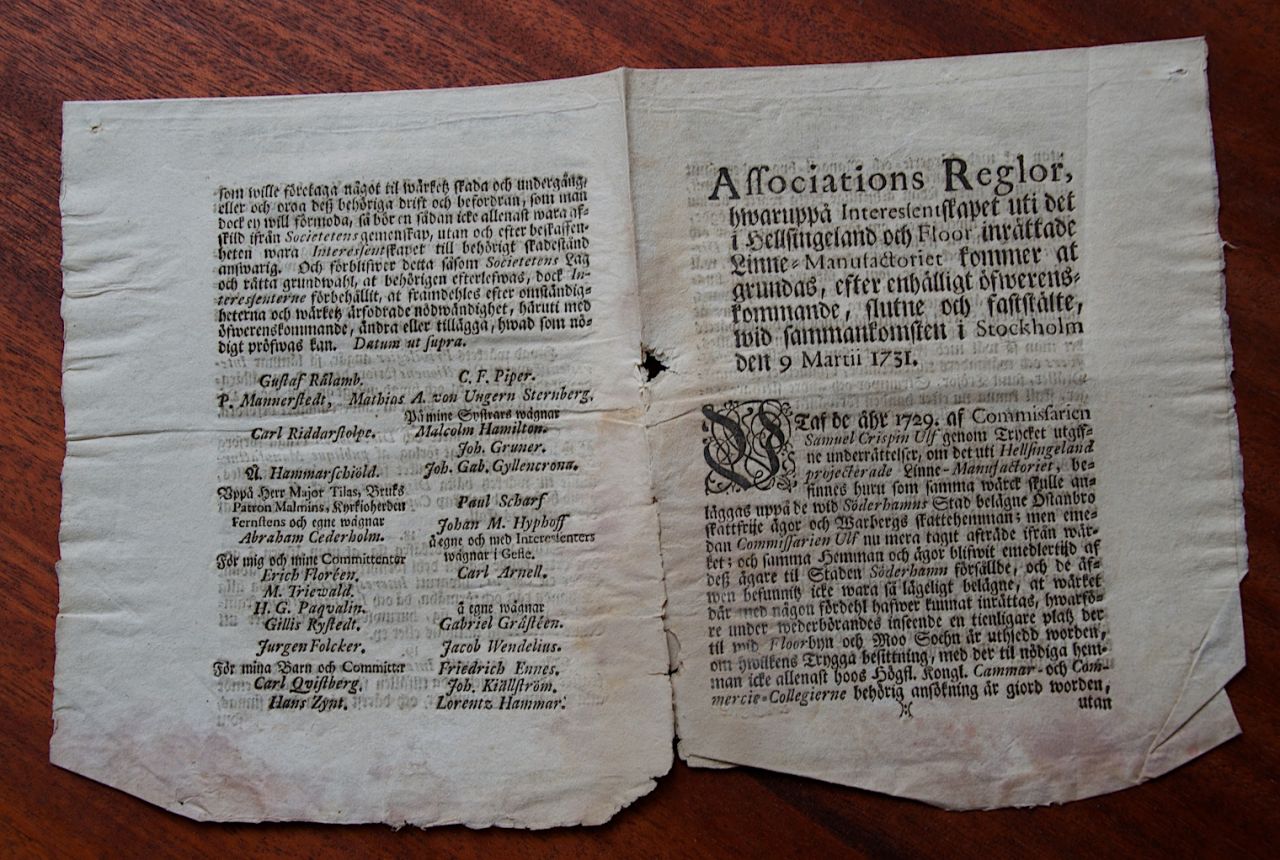 som wille företaga något til wärketz skada och undergång,
eller och oroa deß behöriga drift och befordran, som man
dock ey will förmoda, så bör en sådan icke allenast wara af-
skild ifrån Societetens gemenskap, utan och efter beskaffen-
heten wara Interessentskapet till behörigt skadestånd
answarig. Och förblifwer detta såsom Societetens Lag
och rätta grundwahl, at behörigen efterlefwas, dock In-
teressenterne förbehållit, at framdehles efter omständig-
heterna och wärketz ärfodrade nödwändighet, häruti med
öfwerenskommande, ändra eller tillägga, hwad som nö-
digt pröfwas kan. Datum ut supra.
Gustaf Rålamb. C. F. Piper.
P. Mannerstedt, Mathias A. von Ungern Sternberg.
På mine Systrars wägnar
Carl Riddarstolpe. Malcolm Hamilton.
Joh. Gruner.
A. Hammarschiöld. Joh. Gab. Gyllencrona.
Uppå Herr Major Tilas, Bruks
Patron Malmins, Kyrkioherden Paul Scharf
Fernstens och egne wägnar Johan M. Hyphoff
Abraham Cederholm. å egne och med Interessenters
wägnar i Gefle.
För mig och mine Committenter
Erich Floréen. Carl Arnell.
M. Triewald.
H. G. Paqvalin. å egne wägnar
Gillis Rystedt. Gabriel Gråstéen.
Jurgen Folcker. Jacob Wendelius.
För mina Barn och Committer Friedrich Ennes.
Carl Qvistberg. Joh. Kiällström.
Hans Zynt. Lorentz Hammar.
Associations Reglor,
hwaruppå Interessentskapet uti det
i Hellsingeland och Floor inrättade
Linne-Manufactoriet kommer at
grundas, efter enhälligt öfwerens-
kommande, slutne och faststälte,
wid sammankomsten i Stockholm
den 9 Martii 1731.
UTaf de åhr 1729. af Commissarien
Samuel Crispin Ulf genom Trycket utgif-
ne underrättelser, om det uti Hellsingeland
projecterade Linne-Manufactoriet, be-
finnes huru som samma wärck skulle an-
läggas uppå de wid Söderhamns Stad belägne Ostanbro
skattfrije ägor och Warbergs skattehemman; men eme-
dan Commissarien Ulf nu mera tagit afträde ifrån wär-
ket; och samma Hemman och ägor blifwit emedlertid af
deß ägare til Staden Söderhamn försållde, och de äf-
wen befunnitz icke wara så lägeligt belägne, at wärket
där med någon fördehl hafwer kunnat inrättas, hwarfö-
re under wederbörandes inseende en tienligare platz der
til wid Floorbyn och Moo Sochn är uthsedd worden,
om hwilkens Trygga besittning, med der til nödiga hem-
man icke allenast hoos Högfl. Kongl. Cammar- och Com-
mercie-Collegierne behörig ansökning är giord worden,
):( utan